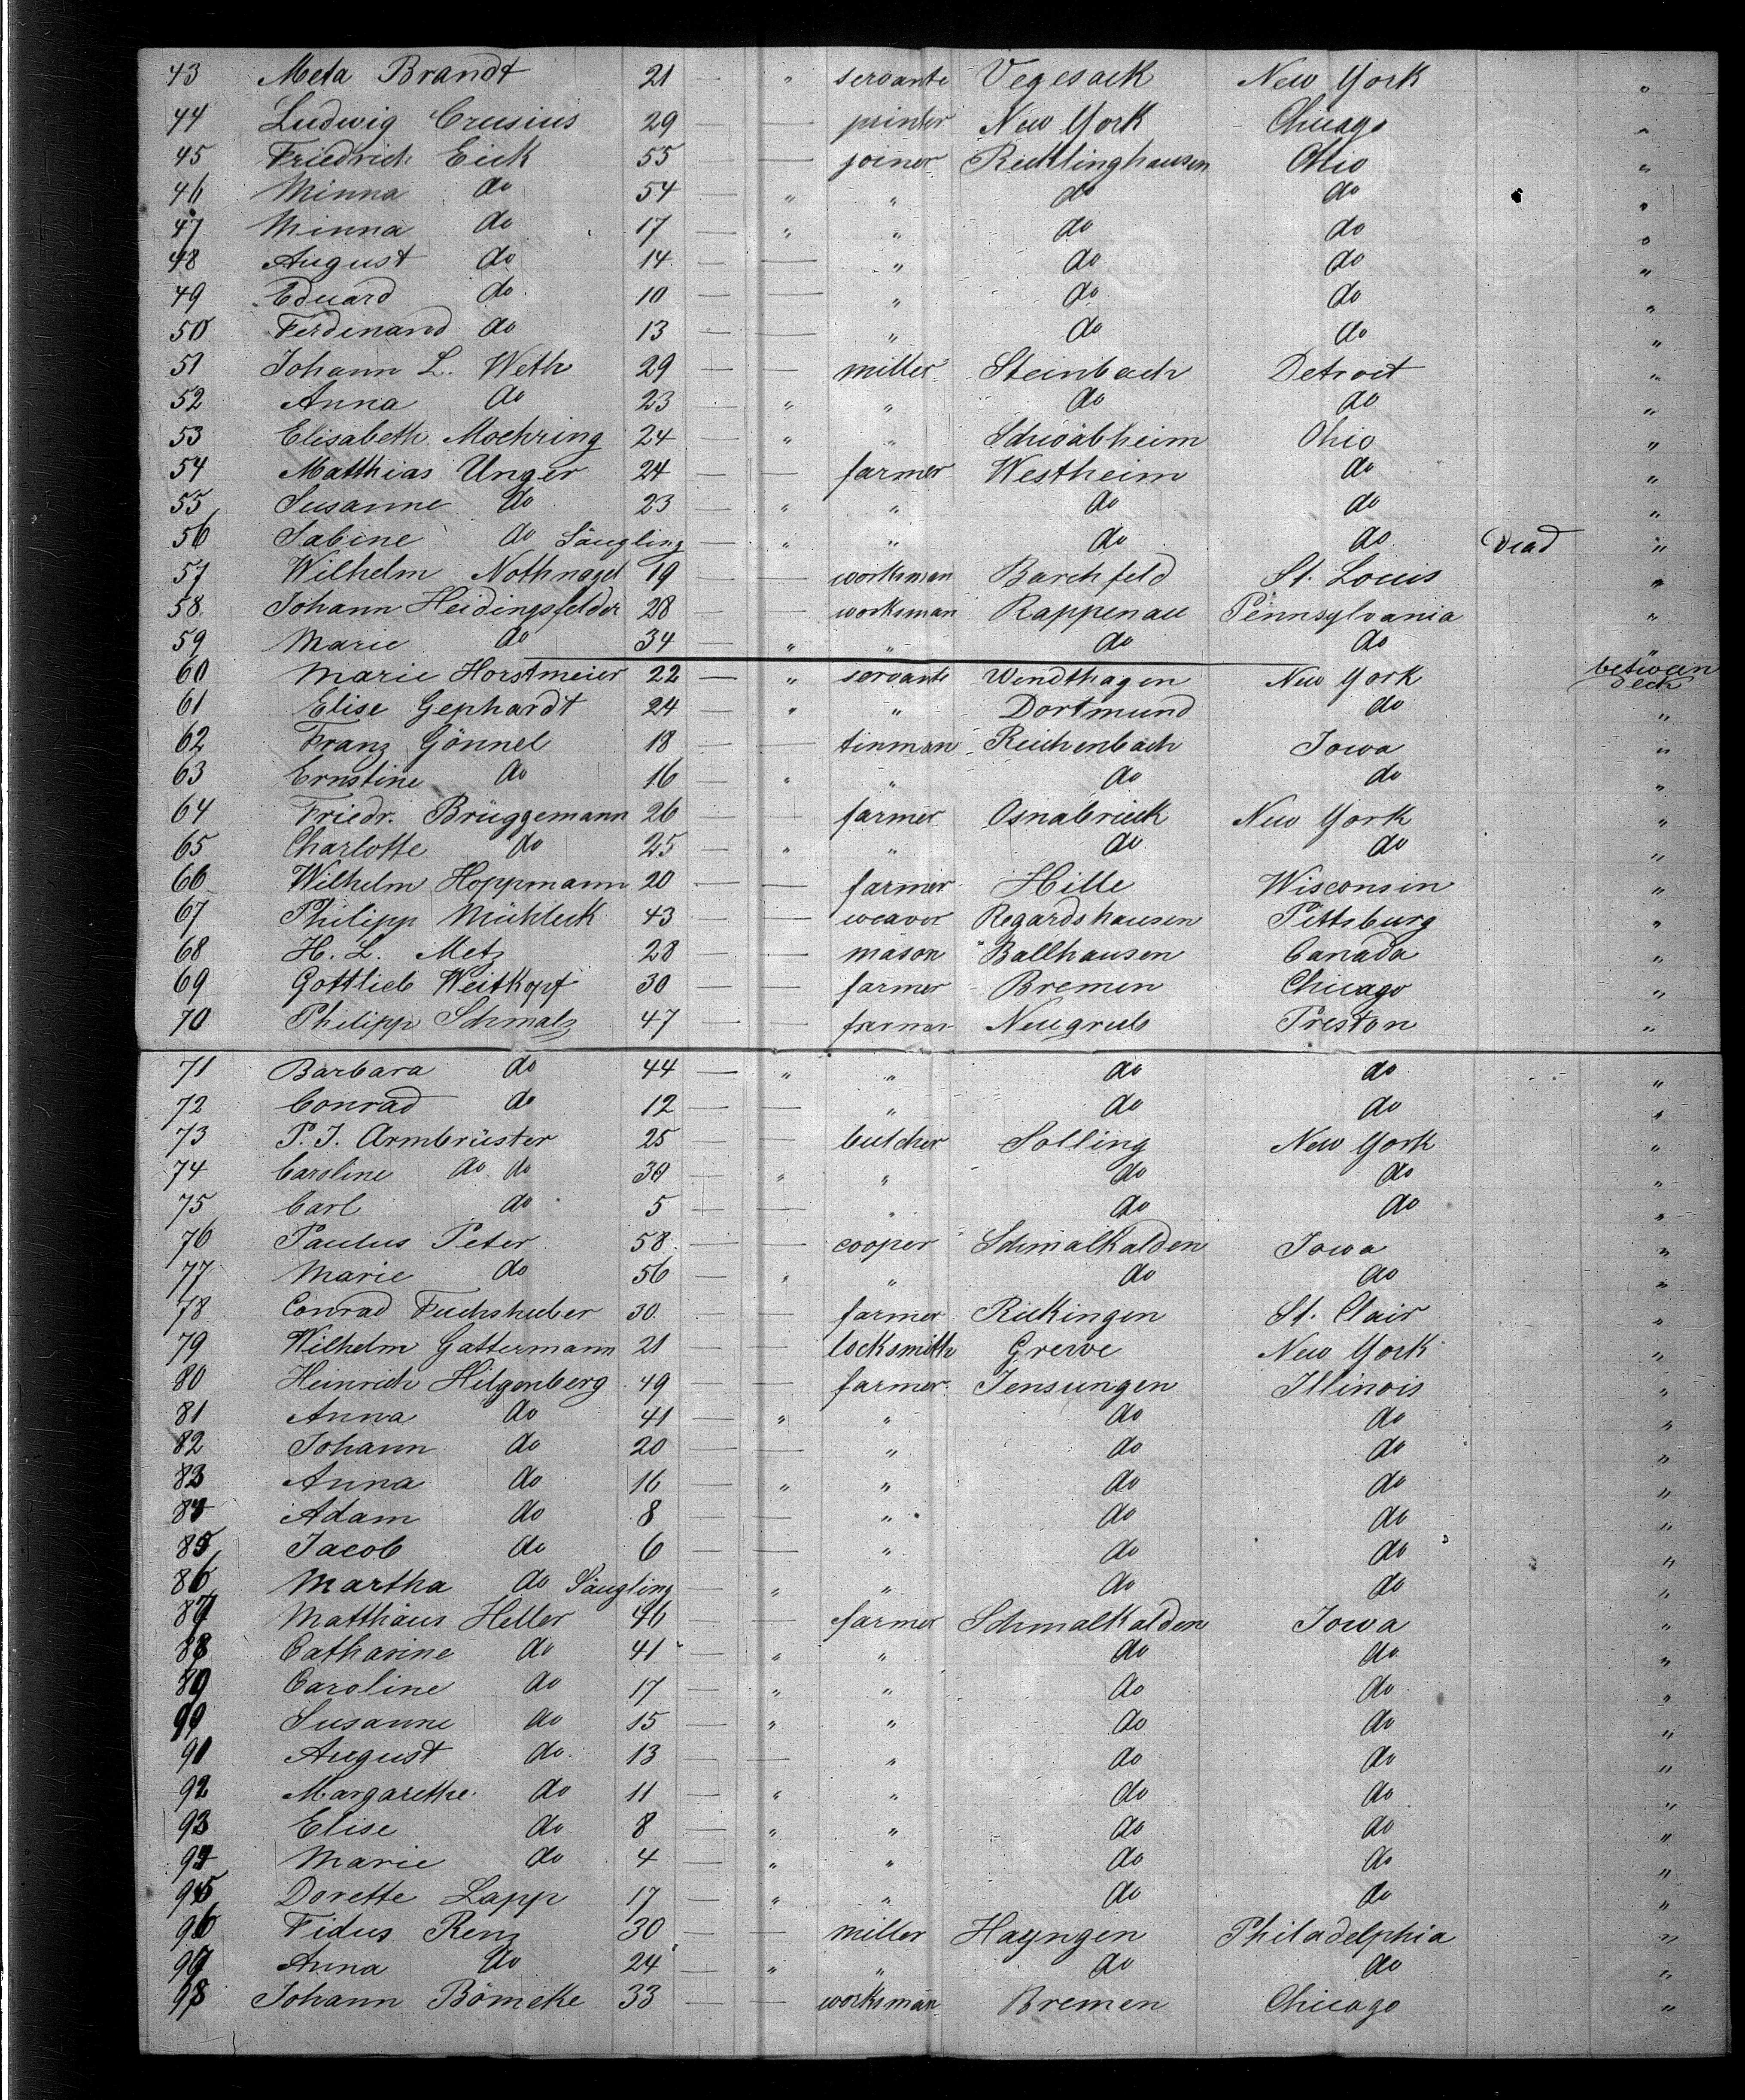 43 Meta Brandt 21 — " servante Vegesack New York "
44 Ludwig Crusius 29 — — printer New York Chicago "
45 Friedrich Eick 55 — — joiner Recklinghausen Ohio "
46 Minna do 54 — " " do do "
47 Minna do 17 — " " do do "
48 August do 14 — — " do do "
49 Eduard do 10 — — " do do "
50 Ferdinand do 13 — — " do do "
51 Johann L. Weth 29 — — miller Steinbach Detroit "
52 Anna do 23 — " " do do "
53 Elisabeth Moehring 24 — " " Schwabheim Ohio "
54 Matthias Unger 24 — — farmer Westheim do "
55 Susanne do 23 — " " do do "
56 Sabine do Säugling — " " do do Dead "
57 Wilhelm Nothnagel 19 — — workman Barchfeld St. Louis "
58 Johann Heidingsfelder 28 — — worksman Rappenau Pennsylvania "
59 Marie do 34 — " " do do "
60 Marie Horstmeier 22 — " servante Wendthagen New York between deck
61 Elise Gephardt 24 — " " Dortmund do "
62 Franz Gönnel 18 — — tinman Reichenbach Iowa "
63 Ernstine do 16 — " " do do "
64 Friedr. Brüggemann 26 — — farmer Osnabrück New York "
65 Charlotte do 25 — " " do do "
66 Wilhelm Hoppmann 20 — — farmer Hille Wisconsin "
67 Philipp Mühleck 43 — — weaver Regardshausen Pittsburg "
68 H. L. Metz 28 — — mason Ballhausen Canada "
69 Gottlieb Weitkopf 30 — — farmer Bremen Chicago "
70 Philipp Schmalz 47 — — farmer Neugrub Preston "
71 Barbara do 44 — " " do do "
72 Conrad do 12 — — " do do "
73 P. J. Armbrüster 25 — — butcher Solling New York "
74 Caroline do do 30 — " " do do "
75 Carl do 5 — — " do do "
76 Paulus Peter 58 — — cooper Schmalkalden Iowa "
77 Marie do 56 — " " do do "
78 Conrad Fuchshuber 30 — — farmer Rickingen St. Clair "
79 Wilhelm Gattermann 21 — — locksmith Grewe New York "
80 Heinrich Hilgenberg 49 — — farmer Jensungen Illinois "
81 Anna do 41 — " " do do "
82 Johann do 20 — — " do do "
83 Anna do 16 — " " do do "
84 Adam do 8 — — " do do "
85 Jacob do 6 — — " do do "
86 Martha do Säugling — " " do do "
87 Matthäus Heller 46 — — farmer Schmalkalden Iowa "
88 Catharine do 41 — " " do do "
89 Caroline do 17 — " " do do "
90 Susanne do 15 — " " do do "
91 August do 13 — — " do do "
92 Margarethe do 11 — " " do do "
93 Elise do 8 — " " do do "
94 Marie do 4 — " " do do "
95 Dorette Lapp 17 — " " do do "
96 Fidus Renz 30 — — miller Hayngen Philadelphia "
97 Anna do 24 — " " do do "
98 Johann Bömeke 33 — — worksman Bremen Chicago "